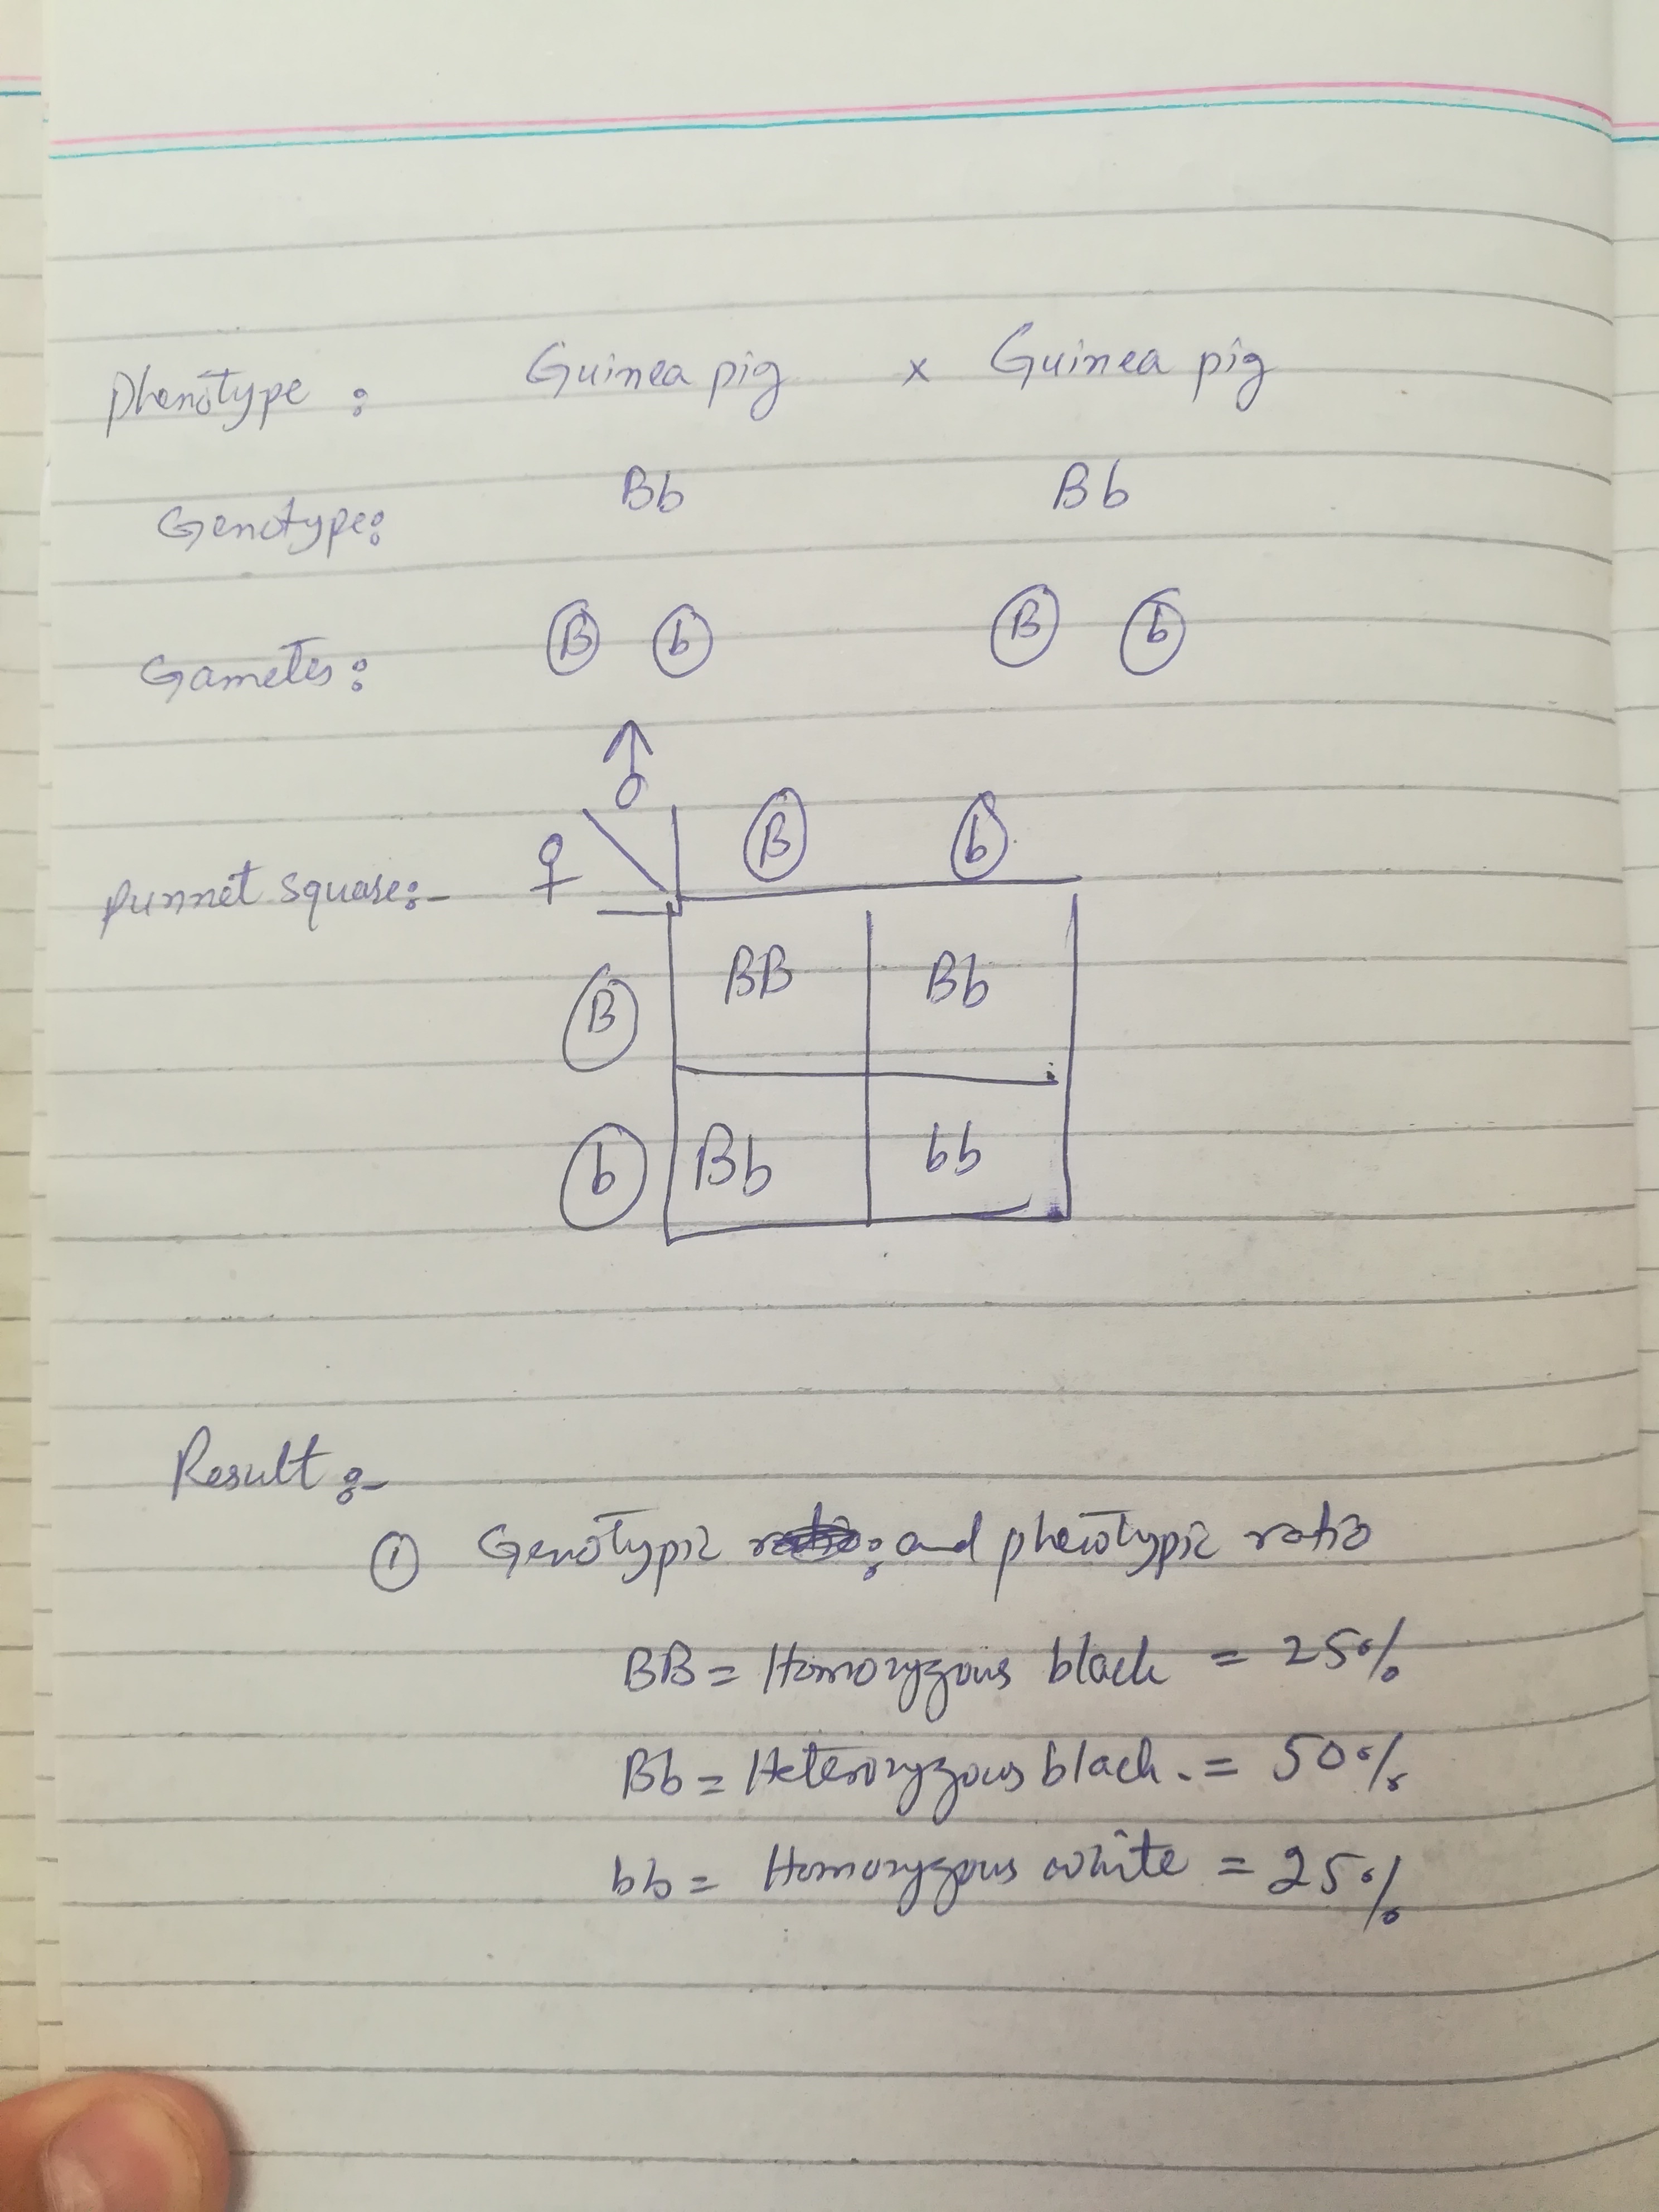 Phenotype : Guinea pig x Guinea pig
Genotype: Bb Bb
Gametes: B b B b
♂
♀ B b
punnet square:-
B BB Bb
b Bb bb
Result :-
① Genotypic and phenotypic ratio
BB = Homozygous black = 25%
Bb = Heterozygous black. = 50%
bb = Homozygous white = 25%